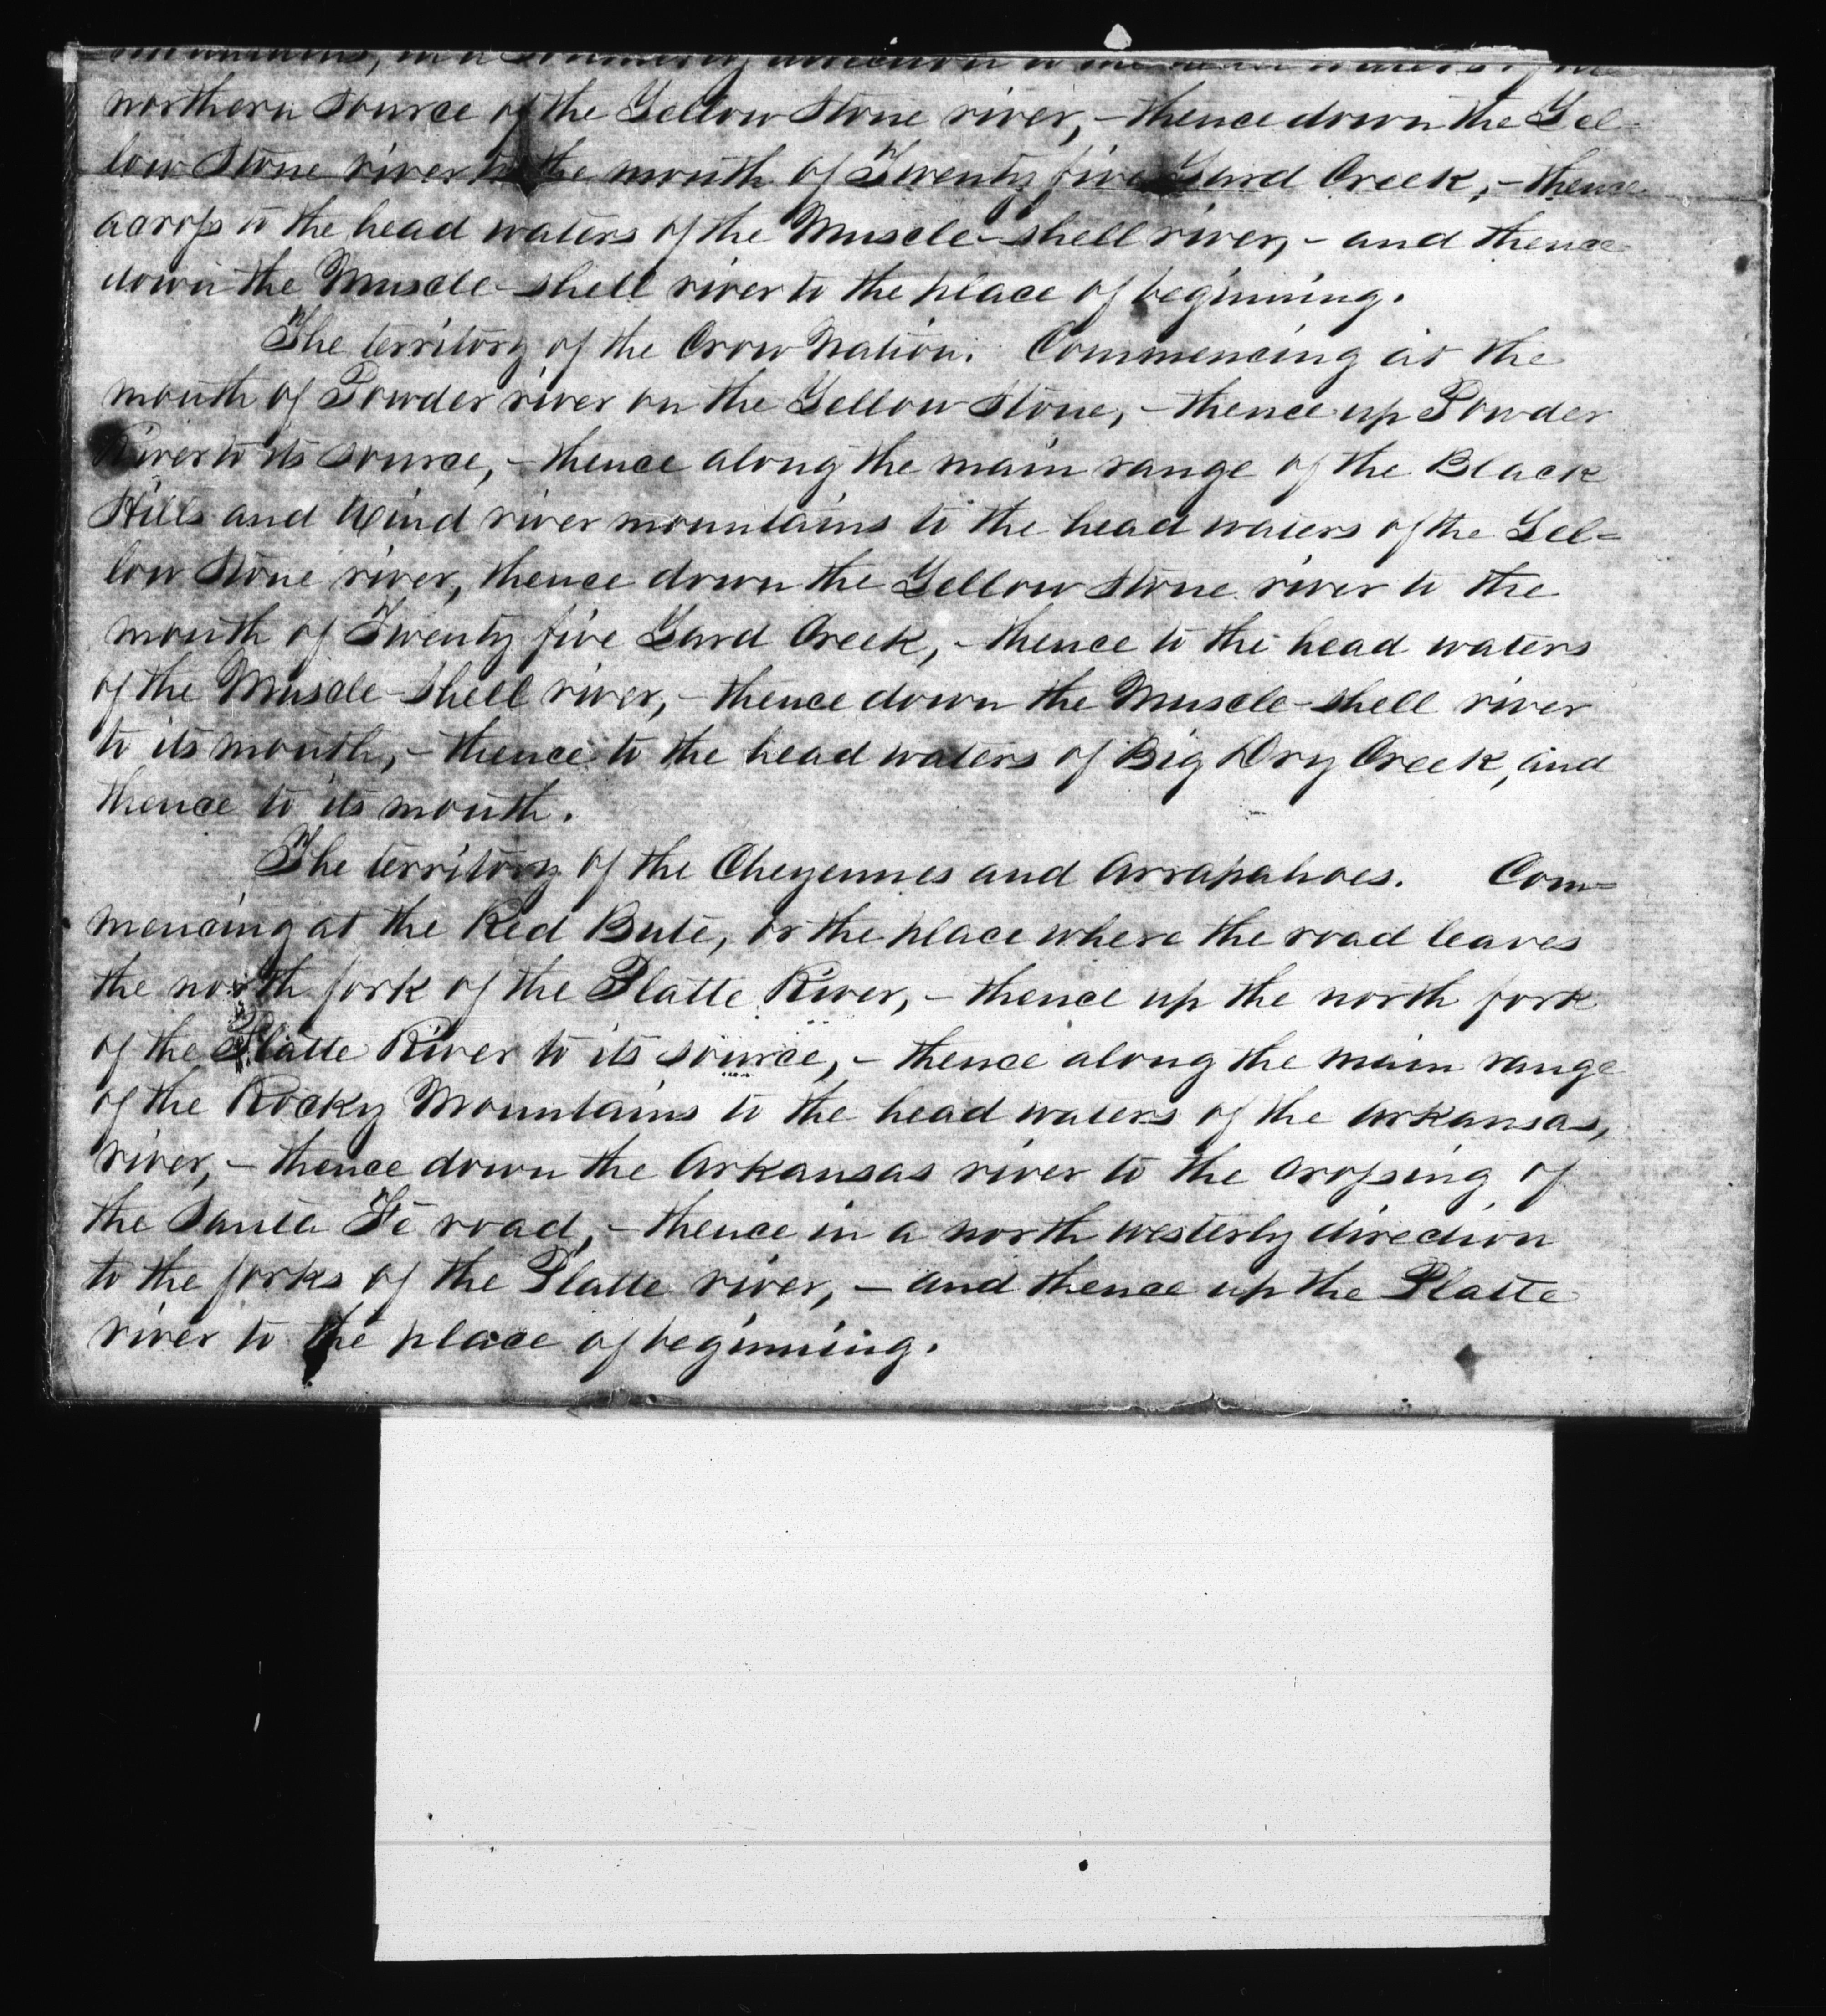 mountains, in a southerly direction to the head waters of the
northern source of the Yellow Stone river, – thence down the Yel-
low Stone river to the mouth of Twenty five Yard Creek, – thence
across to the head waters of the Muscle-shell river, – and thence
down the Muscle-shell river to the place of beginning.
The territory of the Crow Nation. Commencing at the
mouth of Powder river on the Yellow Stone, – thence up Powder
River to its source, – thence along the main range of the Black
Hills and Wind river mountains to the head waters of the Yel=
low Stone river, thence down the Yellow Stone river to the
mouth of Twenty five Yard Creek, – thence to the head waters
of the Muscle-shell river, – thence down the Muscle-shell river
to its mouth, – thence to the head waters of Big Dry Creek, and
thence to its mouth.
The territory of the Cheyennes and Arrapahoes. Com=
mencing at the Red Bute, or the place where the road leaves
the north fork of the Platte River, – thence up the north fork
of the Platte River to its source, – thence along the main range
of the Rocky Mountains to the head waters of the Arkansas,
river, – thence down the Arkansas river to the crossing of
the Santa Fé road, – thence in a north westerly direction
to the forks of the Platte river, – and thence up the Platte
river to the place of beginning.